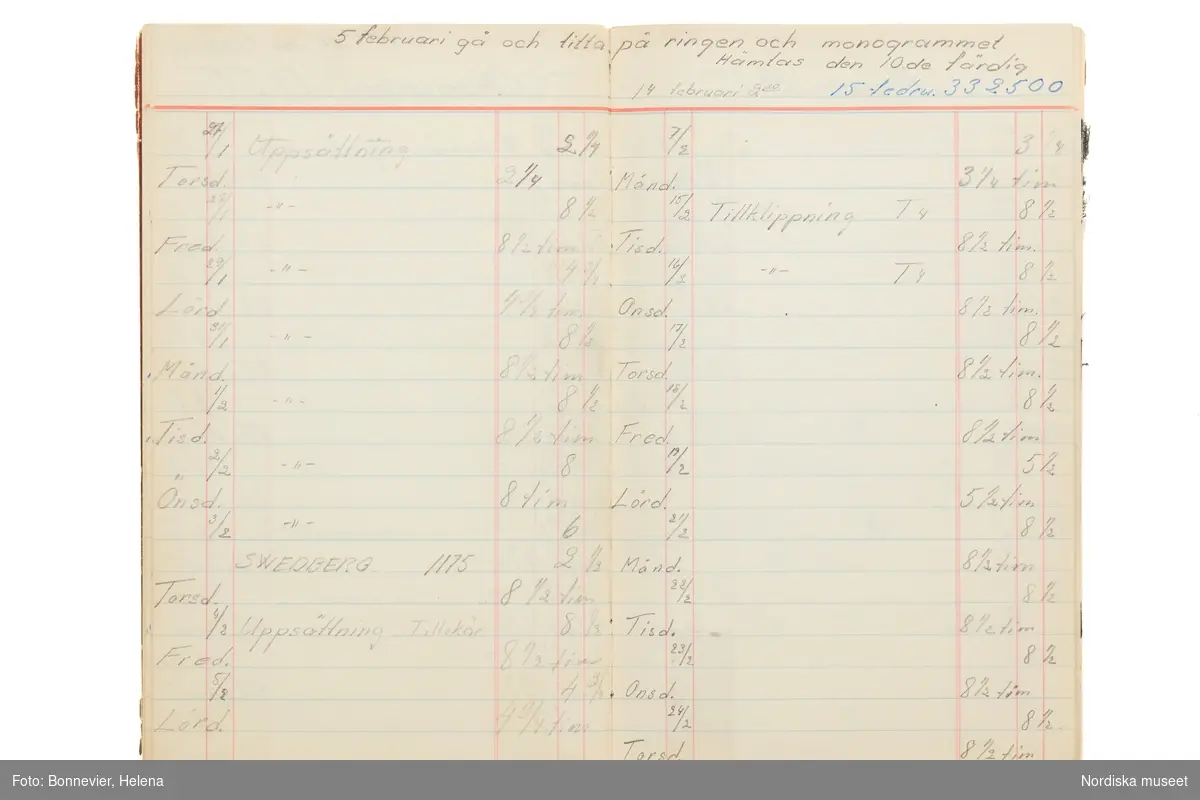 5 februari gå och titta på ringen och monogrammet
Hämtas den 10.de färdig
14 februari
15 fedru. 332500
27/1 Uppsättning 2 1/4
Torsd. 2 1/4
-"- 8 1/2
Fred. 8 1/2 tim
29/1 -"- 4
Lörd 4 tim
31/1 -"- 8 1/2
Månd. 8 1/2 tim
1/2 -"- 8 1/2
Tisd. 8 1/2 tim
2/2 -"- 8
Onsd. 8 tim
3/2 -"- 6
SWEDBERG 1175 2 1/2
Torsd. 8 1/2 tim
4/2 Uppsättning 8 1/2
Fred. 8 1/2 tim
5/2 4 3/4
Lörd. 4 3/4 tim
7/2 3 1/4
Månd. 3 1/4 tim
15/2 Tillklippning T4 8 1/2
Tisd. 8 1/2 tim.
16/2 -"- T4 8 1/2
Onsd. 8 1/2 tim.
17/2 8 1/2
Torsd. 8 1/2 tim.
18/2 8 1/2
Fred. 8 1/2 tim
19/2 5 1/2
Lörd. 5 1/2 tim
21/2 8 1/2
Månd. 8 1/2 tim
22/2 8 1/2
Tisd. 8 1/2 tim
23/2 8 1/2
Onsd. 8 1/2 tim
24/2 8 1/2
Torsd. 8 1/2 tim
Foto: Bonnevier, Helena
Nordiska museet